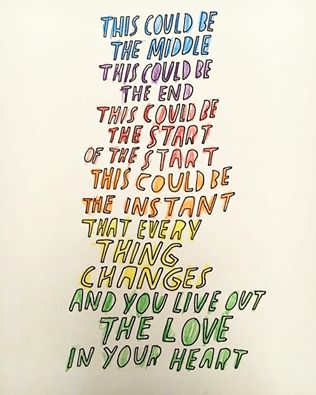 THIS COULD BE
THE MIDDLE
THIS COULD BE
THE END
THIS COULD BE
THE START
OF THE START
THIS COULD BE
THE INSTANT
THAT EVERY
THING
CHANGES
AND YOU LIVE OUT
THE LOVE
IN YOUR HEART